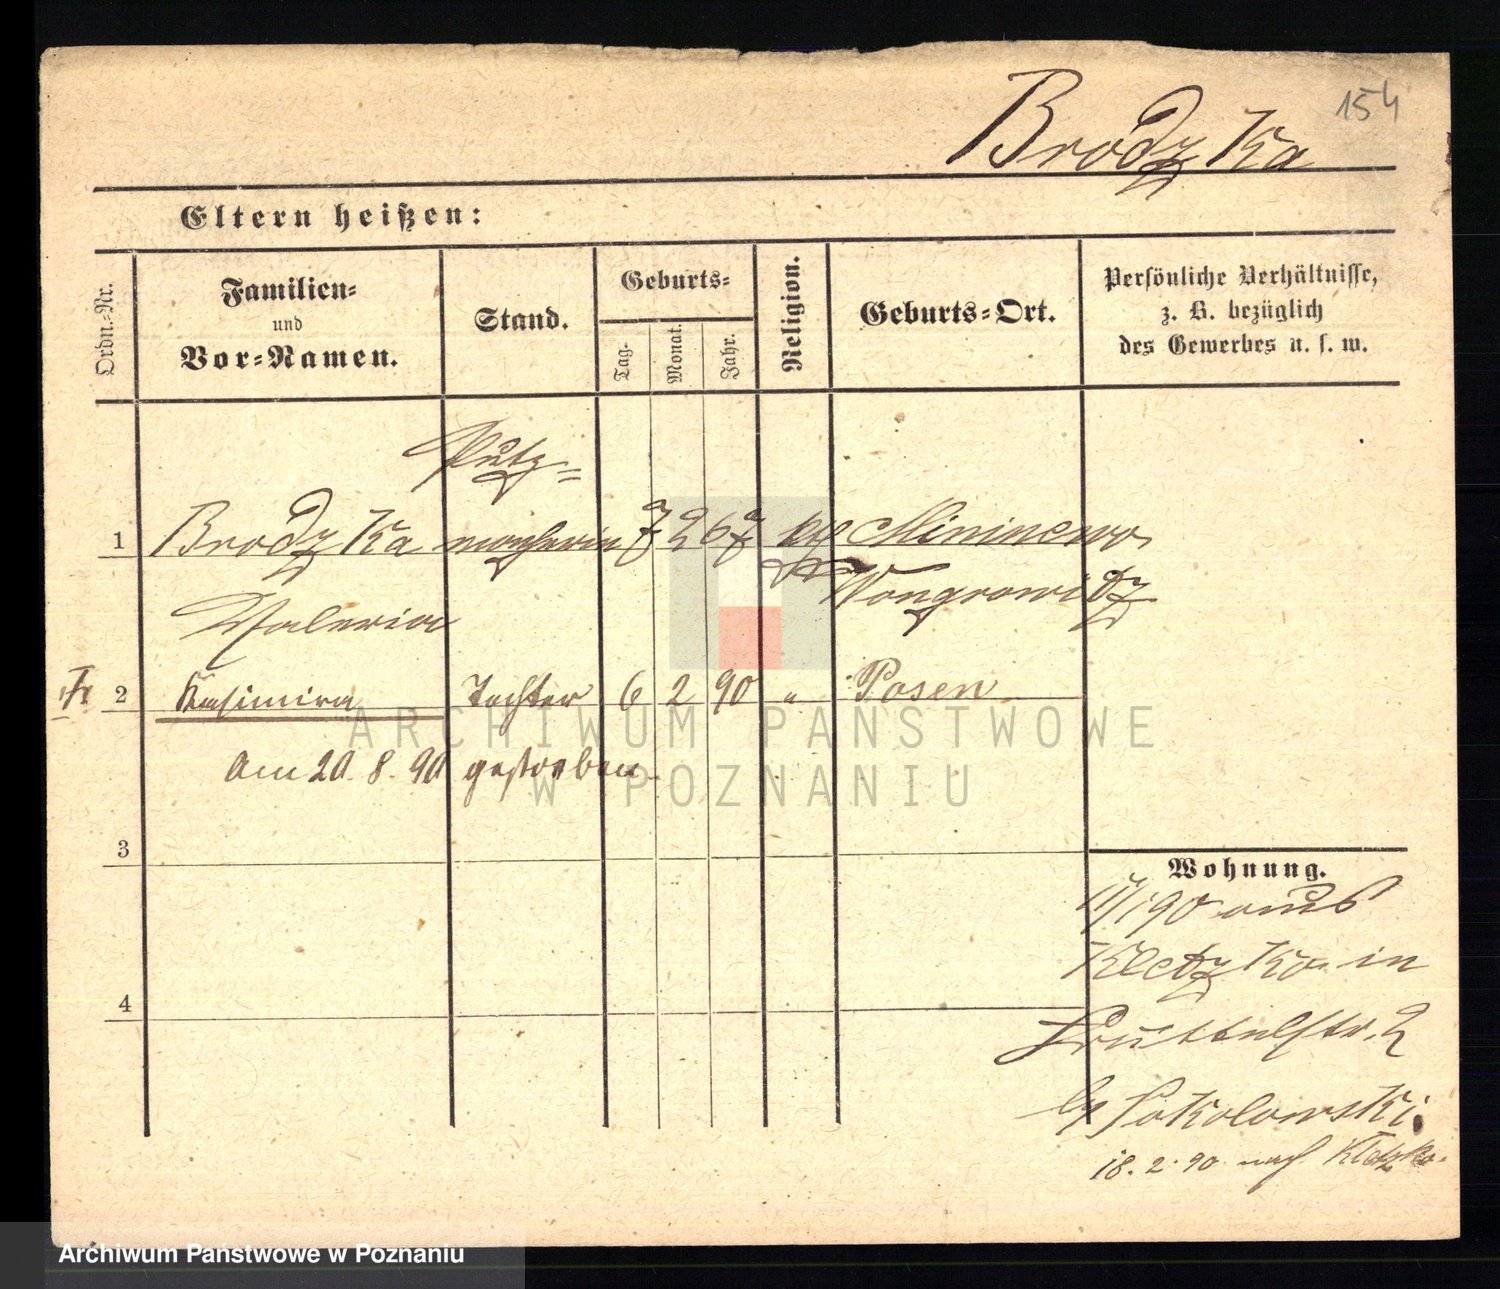 154
Brodzka
Eltern heißen:
Ordn.-Nr.
Familien-
und
Vor-Namen.
Stand.
Geburts-
Tag.
Monat.
Jahr.
Religion.
Geburts-Ort.
Persönliche Verhältnisse,
z. B. bezüglich
des Gewerbes u. s. w.
Putz-
1 Brodzka macherin 7 2 67 Mininewo
Wongrowitz
Valeria
2 Kasimira Tochter 6 2 90 " Posen
Am 20. 8. 90 gestorben.
3
4
Wohnung.
11/1 90 aus
Kletzko in
str. 2
Sokolowski.
18. 2. 90 nach Kletzko.
ARCHIWUM PAŃSTWOWE
W POZNANIU
Archiwum Państwowe w Poznaniu